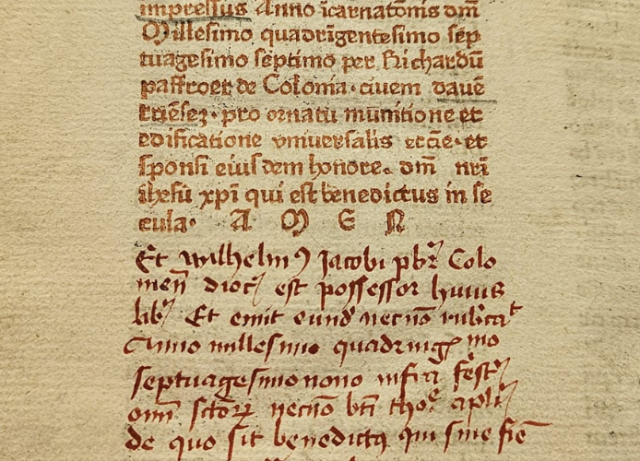 impressus Anno īcarnatōnis dm̄
Millesimo quadrīgentesimo sep
tuagesimo septimo per Richardū
paffroet de Colonia · ciuem dauē
triēseꝫ · pro ornatu mūnitione et
edificatione vniuersalis ecc̄ie · et
sponsi eiusdem honore . dm̄ nr̄i
ihesū xp̄i qui est benedictus in se
cula · A M E N
Et wilhelmꝰ Jacobi pbr̄ Colo
nien̄ dioc̄ est possessor huius
libꝫ Et emit eund̄ necnō rubꝛicat
Anno millesimo quadringꝫ mo
septuagesimonono infra festꝫ
om̄ sctōrꝫ necnō bt̄i thoᵉ apl̄i
de quo sit benedictꝰ qui sine fiē